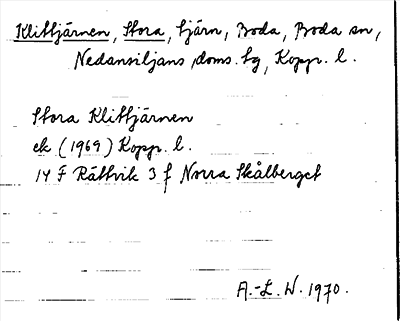 Klittjärnen, Stora, tjärn, Boda, Boda sn,
Nedansiljans doms. tg, Kopp. l.
Stora Klittjärnen
ek (1969) Kopp. l.
14 F Rättvik 3 f Norra Skålberget
A.-L. W. 1970.